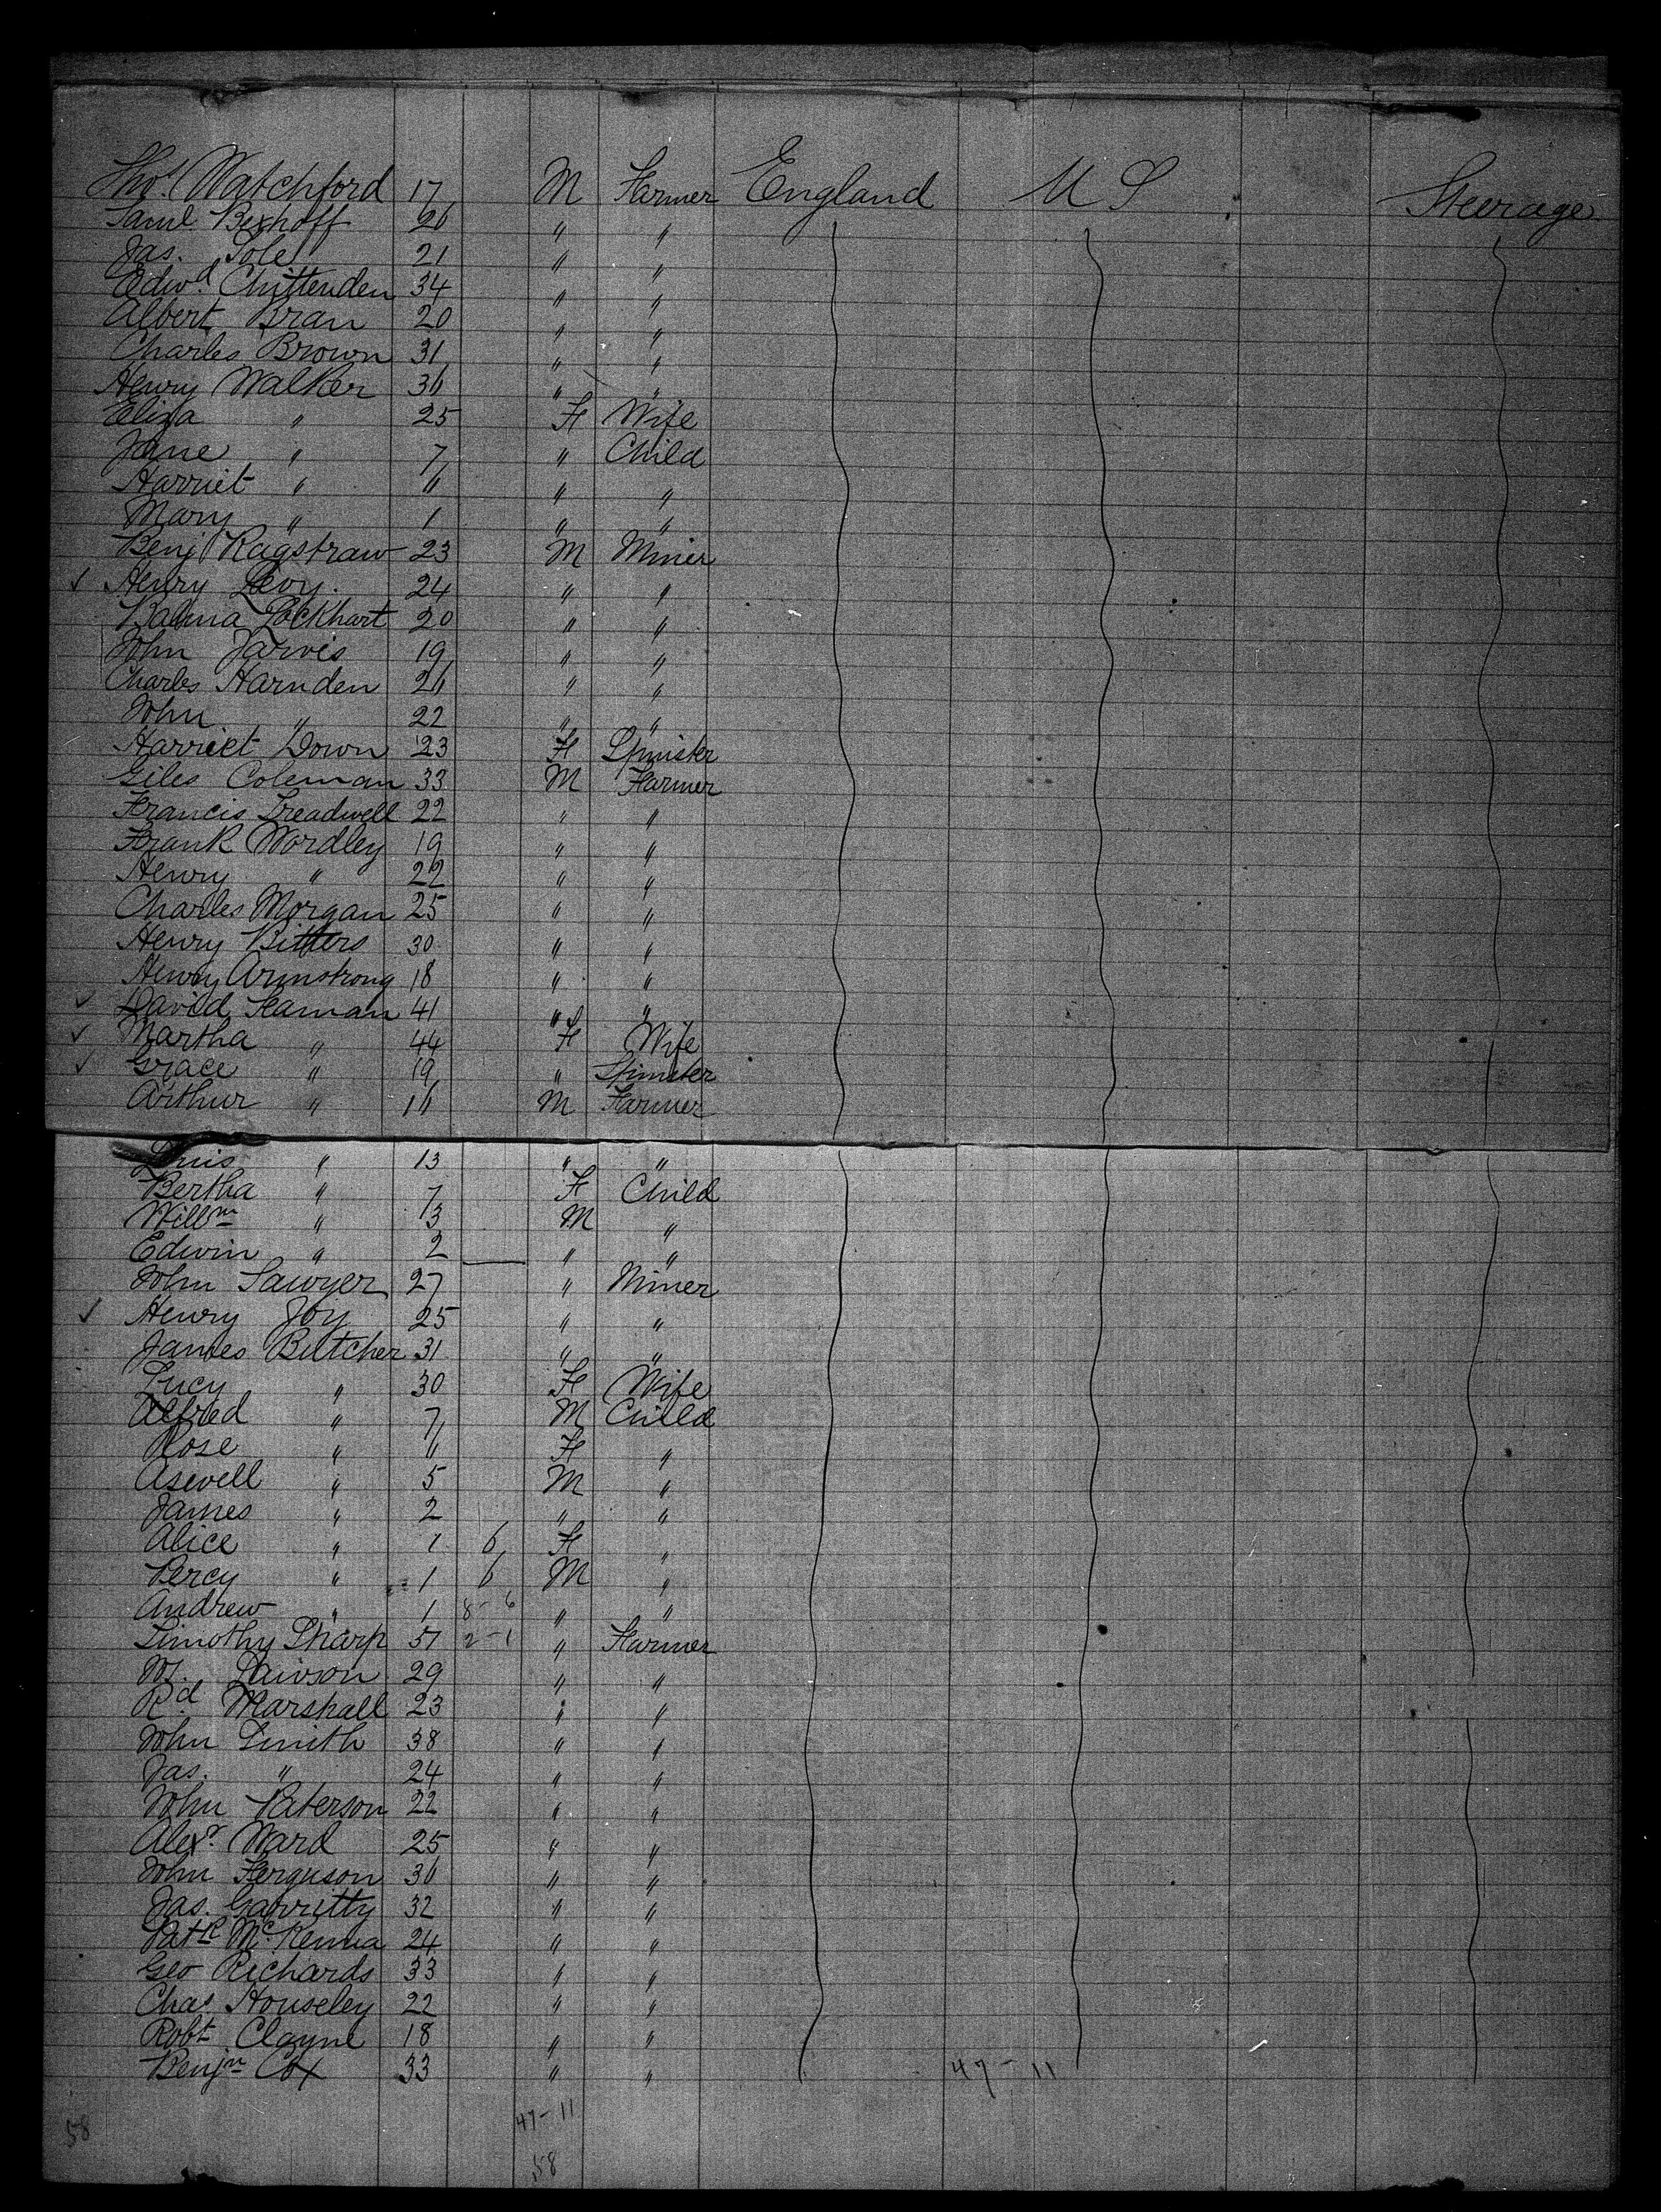 Thos. Watchford 17 M Farmer England U S Steerage
Saml Bexhoff 26 " "
Jas. Sole 21 " "
Edwd. Chittenden 34 " "
Albert Bran 20 " "
Charles Brown 31 " "
Henry Walker 36 " "
Eliza " 25 F Wife
Jane " 7 " Child
Harriet " 6 " "
Mary " 1 " "
Benj Ragstraw 23 M Miner
✓ Henry Levy. 24 " "
Lockhart 20 " "
John Jarvis 19 " "
Charles Harnden 26 " "
John " 22 " "
Harriet Down 23 F Spinster
Giles Coleman 33 M Farmer
Francis Treadwell 22 " "
Frank Wordley 19 " "
Henry " 22 " "
Charles Morgan 25 " "
Henry Bitters 30 " "
Henry Armstrong 18 " "
✓ David Haman 41 " "
✓ Martha " 44 F Wife
✓ Grace " 19 " Spinster
Arthur " 16 M Farmer
Louis " 13 " "
Bertha " 7 F Child
Willm " 3 M "
Edwin " 2 " "
John Sawyer 27 " Miner
✓ Henry Joy 25 " "
James Butcher 31 " "
Lucy " 30 F Wife
Alfred " 7 M Child
Rose " 6 F "
Asewell " 5 M "
James " 2 " "
Alice " 1 6 F "
Percy " 1 6 M "
Andrew " 1 8-6 " "
Timothy Sharp 51 2-1 " Farmer
Lawson 29 " "
Rd. Marshall 23 " "
John Smith 38 " "
Jas. " 24 " "
John Paterson 22 " "
Alexr. Ward 25 " "
John Ferguson 36 " "
Jas. Garritty 32 " "
Patk McKenna 24 " "
Geo Richards 33 " "
Chas. Houseley 22 " "
Robt Clayne 18 " "
Benjn Cox 33 " "
47-11
47-11
58
58